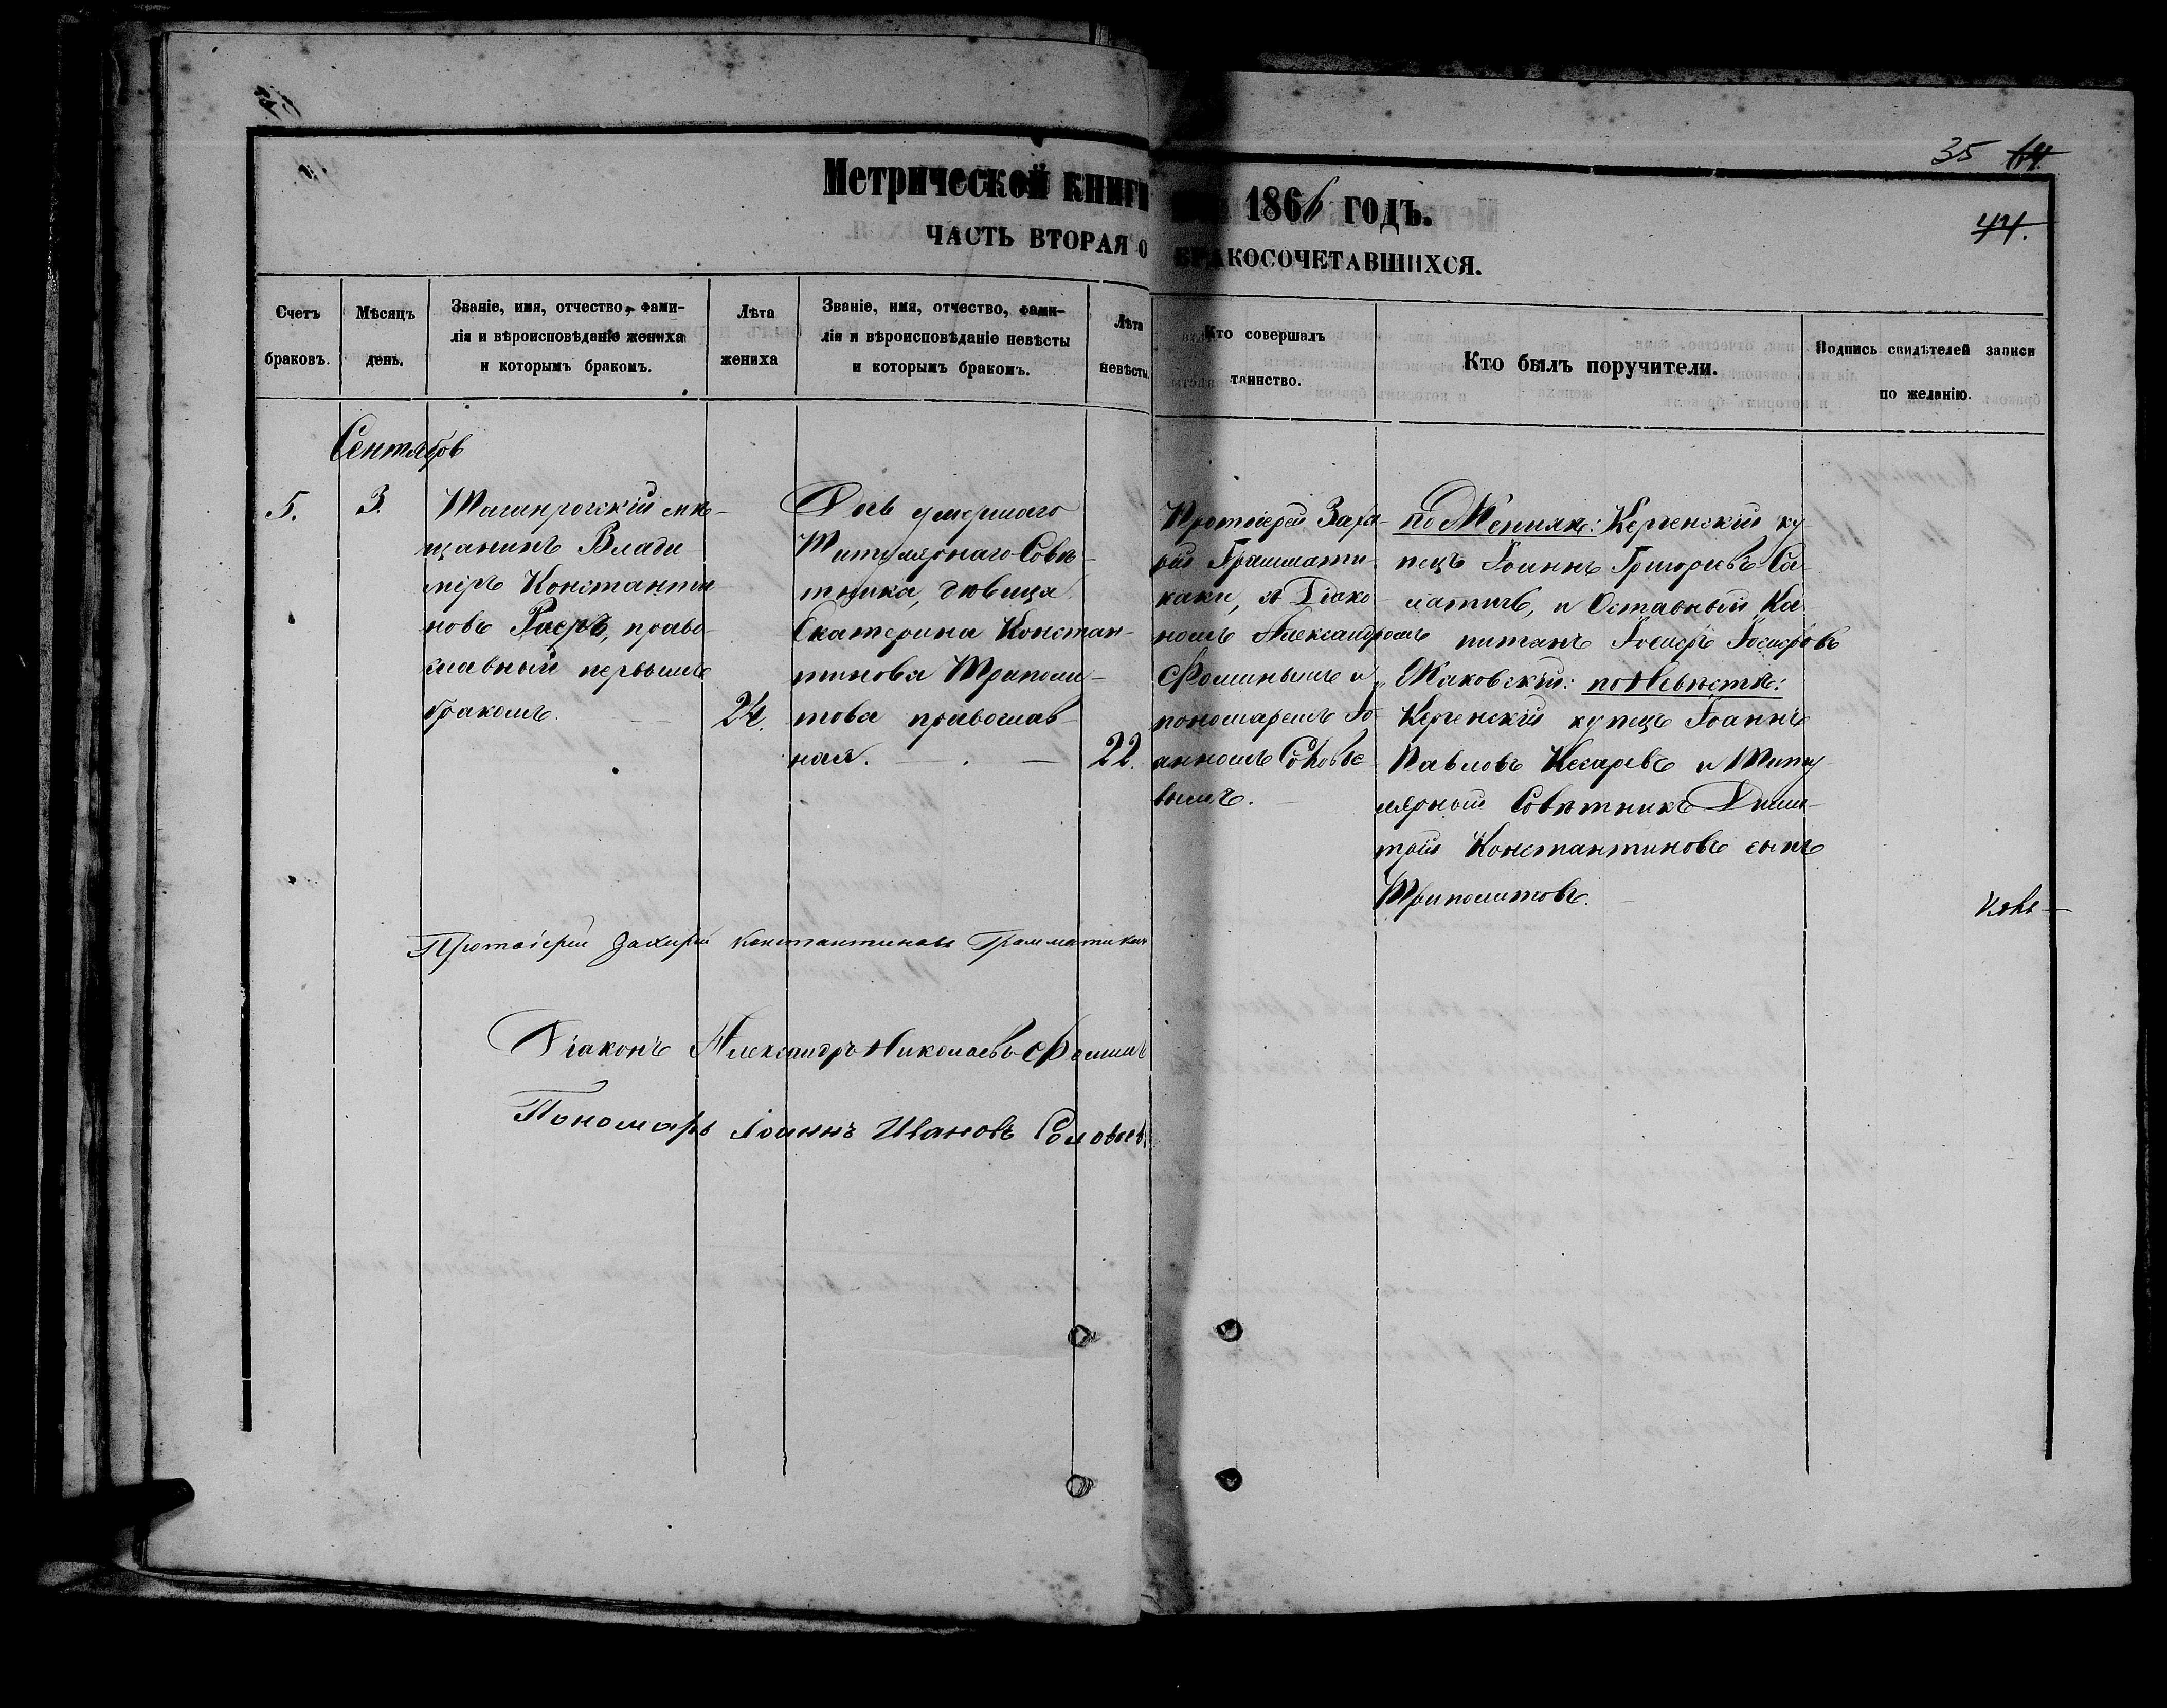 35 64.
44.
Метрической книги 1866 годъ.
ЧАСТЬ ВТОРАЯ О БРАКОСОЧЕТАВШИХСЯ.
Счетъ браковъ.
Мѣсяцъ день.
Званіе, имя, отчество, фами-
лія и вѣроисповѣданіе жениха
и которымъ бракомъ.
Лѣта жениха
Званіе, имя, отчество, фами-
лія и вѣроисповѣданіе невѣсты
и которымъ бракомъ.
Лѣта невѣсты.
Кто совершалъ
таинство.
Кто былъ поручители.
Подпись свидѣтелей записи
по желанію.
Сентябрь
5.
3.
Таганрогскій мѣ-
щанинъ Влади-
міръ Константи-
новъ, право-
славный первымъ
бракомъ.
24.
Дочь умершаго
Титулярнаго Совѣ-
тника, дѣвица
Екатерина Констан-
тинова Триполи-
това православ-
ная.
22.
Протоіерей Заха-
рій Граммати-
каки, съ Діако-
номъ Александромъ
Фоминымъ и
пономаремъ Іо-
анномъ Соловье-
вымъ.
по Женихѣ: Керченскій ку-
пецъ Іоаннъ Григорьевъ Са-
латичъ, и Отставный Ка-
питанъ Іосифъ Іосифовъ
Маковскій: по Невѣстѣ:
Керченскій купецъ Іоаннъ
Павловъ Кесаревъ и Титу-
лярный Совѣтникъ Дими-
трій Константиновъ сынъ
Триполитовъ.
Протоіерей Захарій Константиновъ Грамматикаки
Діаконъ Александръ Николаевъ Фоминъ
Пономарь Іоаннъ Ивановъ Соловьевъ